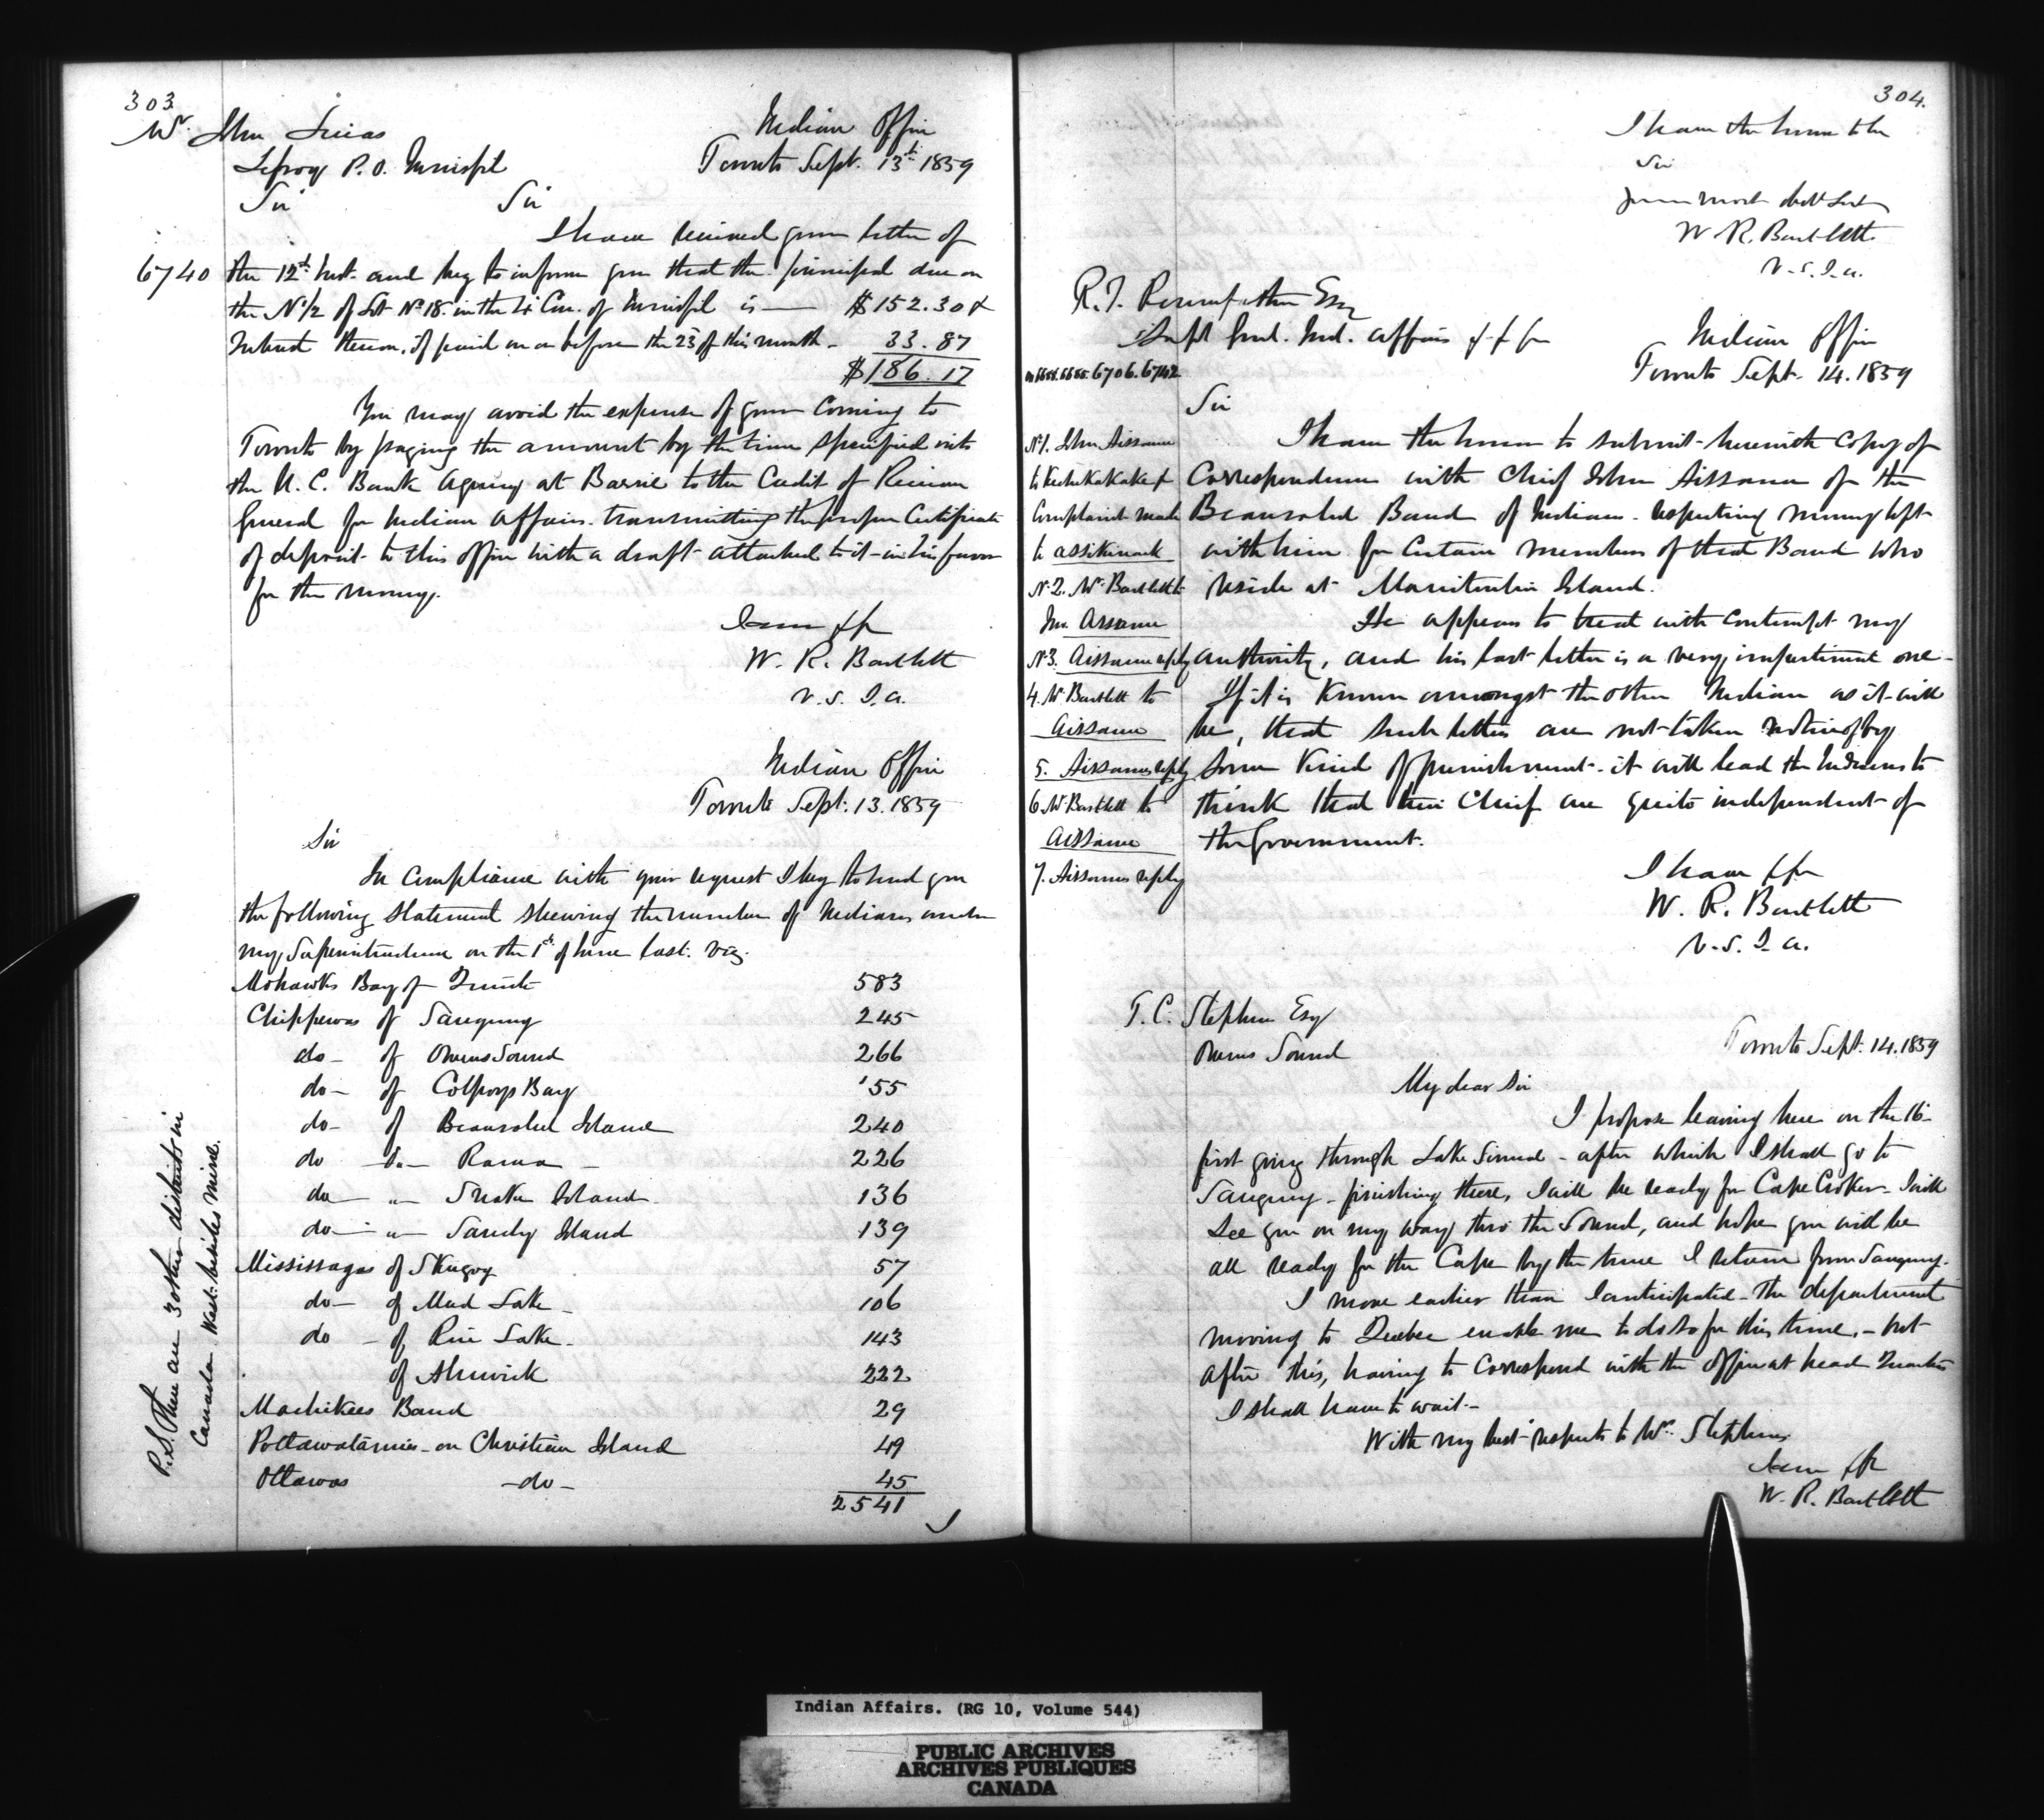 303
Mr. John Lucas
Lefroy P.O. Innisfil
Indian Office
Toronto Sept. 13th 1859
Sir
Sir
I have received your letter of
6740
the 12th Inst. and beg to inform you that the principal due on
the N 1/2 of Lot No 18. in the 4 Con. of Innisfil is — $152.30 &
Interest thereon, if paid on or before the 23 of this month - 33.87
$186.17
You may avoid the expense of your coming to
Toronto by paying the amount by the time specified into
the U. C. Bank Agency at Barrie to the Credit of Receiver
General for Indian Affairs. transmitting the proper Certificate
of deposit to this office with a draft attached to it in his favor
for the money.
I am &c
W. R. Bartlett
V. S. I. A.
Indian Office
Toronto Sept. 13. 1859
Sir
In compliance with your request I beg to send you
the following statement shewing the number of Indians under
my Superintendence on the 1st of June last. viz.
Mohawks Bay of Quinte 583
Chippewas of Saugeeng 245
do - of Owens Sound 266
do - of Colpoys Bay 55
do - of Beausoleil Island 240
do - do - Rama - 226
do - " - Snake Island. 136
do - " - Sandy Island 139
Mississagas of Skugog 57
do - of Mud Lake - 106
do - of Rice Lake - 143
of Alnwick 222
Machikees Band 29
Pottawatamies - on Christian Island 49
Ottawas - do - 45
2541
P.S. There are 3 other districts in
Canada West besides mine.
304.
I have the honor to be
Sir
Your most obdt Servt
W R. Bartlett.
V. S. I. A.
R. T. Pennefather Esq
Supt Genl. Ind. Affairs &c &c &c
Indian Office
Toronto Sept. 14. 1859
6706. 6742
Sir
No 1. John Aissance
to Kechikakake &
Complaint made
to Assikinack
No 2. Mr Bartlett to
Jno. Assance
No 3. Aissance reply
4. Mr Bartlett to
Aissance
5. Aissances reply
6 Mr Bartlett to
Aissance
7. Aissances reply
I have the honor to submit herewith Copy of
Correspondence with Chief John Aissance of the
Beausoleil Band of Indians - respecting money left
with him for Certain members of that Band who
reside at Manitoulin Island.
He appears to treat with contempt my
authority, and his last letter is a very impertinent one -
If it is known amongst the other Indian as it will
be, that such letters are not taken notice of by
some kind of punishment - it will lead the Indians to
think that their Chief are quite independent of
the Government.
I have &c
W. R. Bartlett
V. S. I. A.
T. C. Stephens Esq
Owens Sound
Toronto Sept. 14. 1859
My dear Sir
I propose leaving here on the 16 -
first going through Lake Simcoe - after which I shall go to
Saugeeng - finishing there, I will be ready for Cape Croker - I will
see you on my way thro the Sound, and hope you will be
all ready for the Cape by the time I return from Saugeeng.
I move earlier than I anticipated - The department
moving to Quebec enable me to do so for this time, - but
after this, having to Correspond with the office at head Quarters
I shall have to wait. -
With my best respects to Mrs. Stephens
I am &c
W. R. Bartlett
Indian Affairs. (RG 10, Volume 544)
PUBLIC ARCHIVES
ARCHIVES PUBLIQUES
CANADA